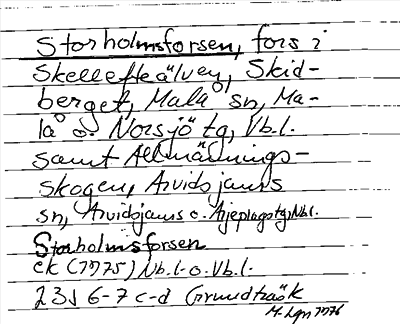 Storholmsforsen, fors i
Skellefteälven, Skid-
berget, Malå sn, Ma-
lå o. Norsjö tg, Vb.l.
samt Allmännings-
skogen, Arvidsjaurs
sn, Arvidsjaurs o. Arjeplogs tg, Nb.l.
Storholmsforsen
ek (1975) Nb.l. o. Vb.l.
23J 6-7 c-d Grundträsk
1976